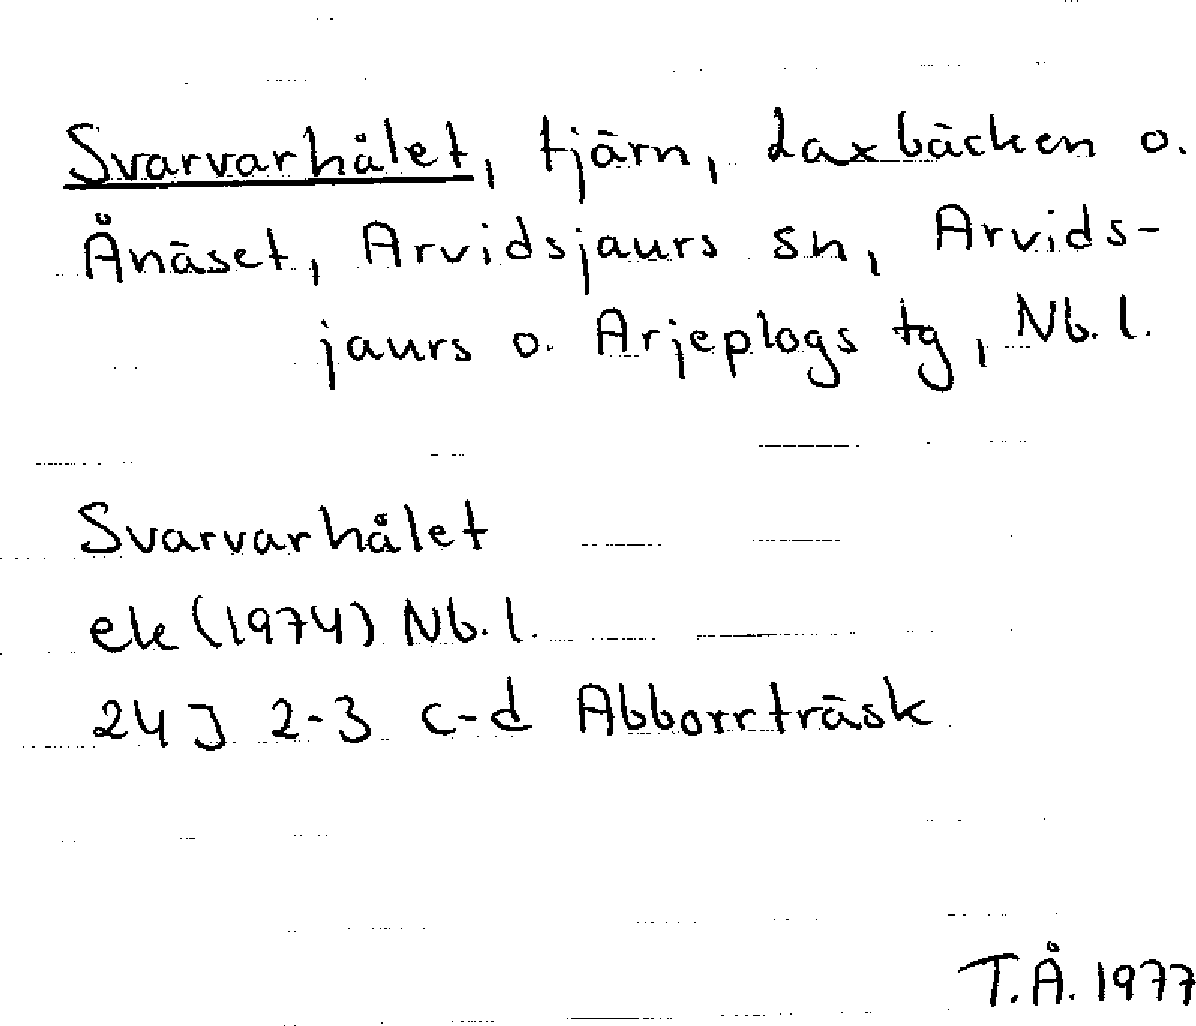 Svarvarhålet, tjärn, Laxbäcken o.
Ånäset, Arvidsjaurs sn, Arvids-
jaurs o. Arjeplogs tg, Nb. l.
Svarvarhålet
ek (1974) Nb. l.
24 J 2-3 c-d Abborrträsk
T.Å. 1977